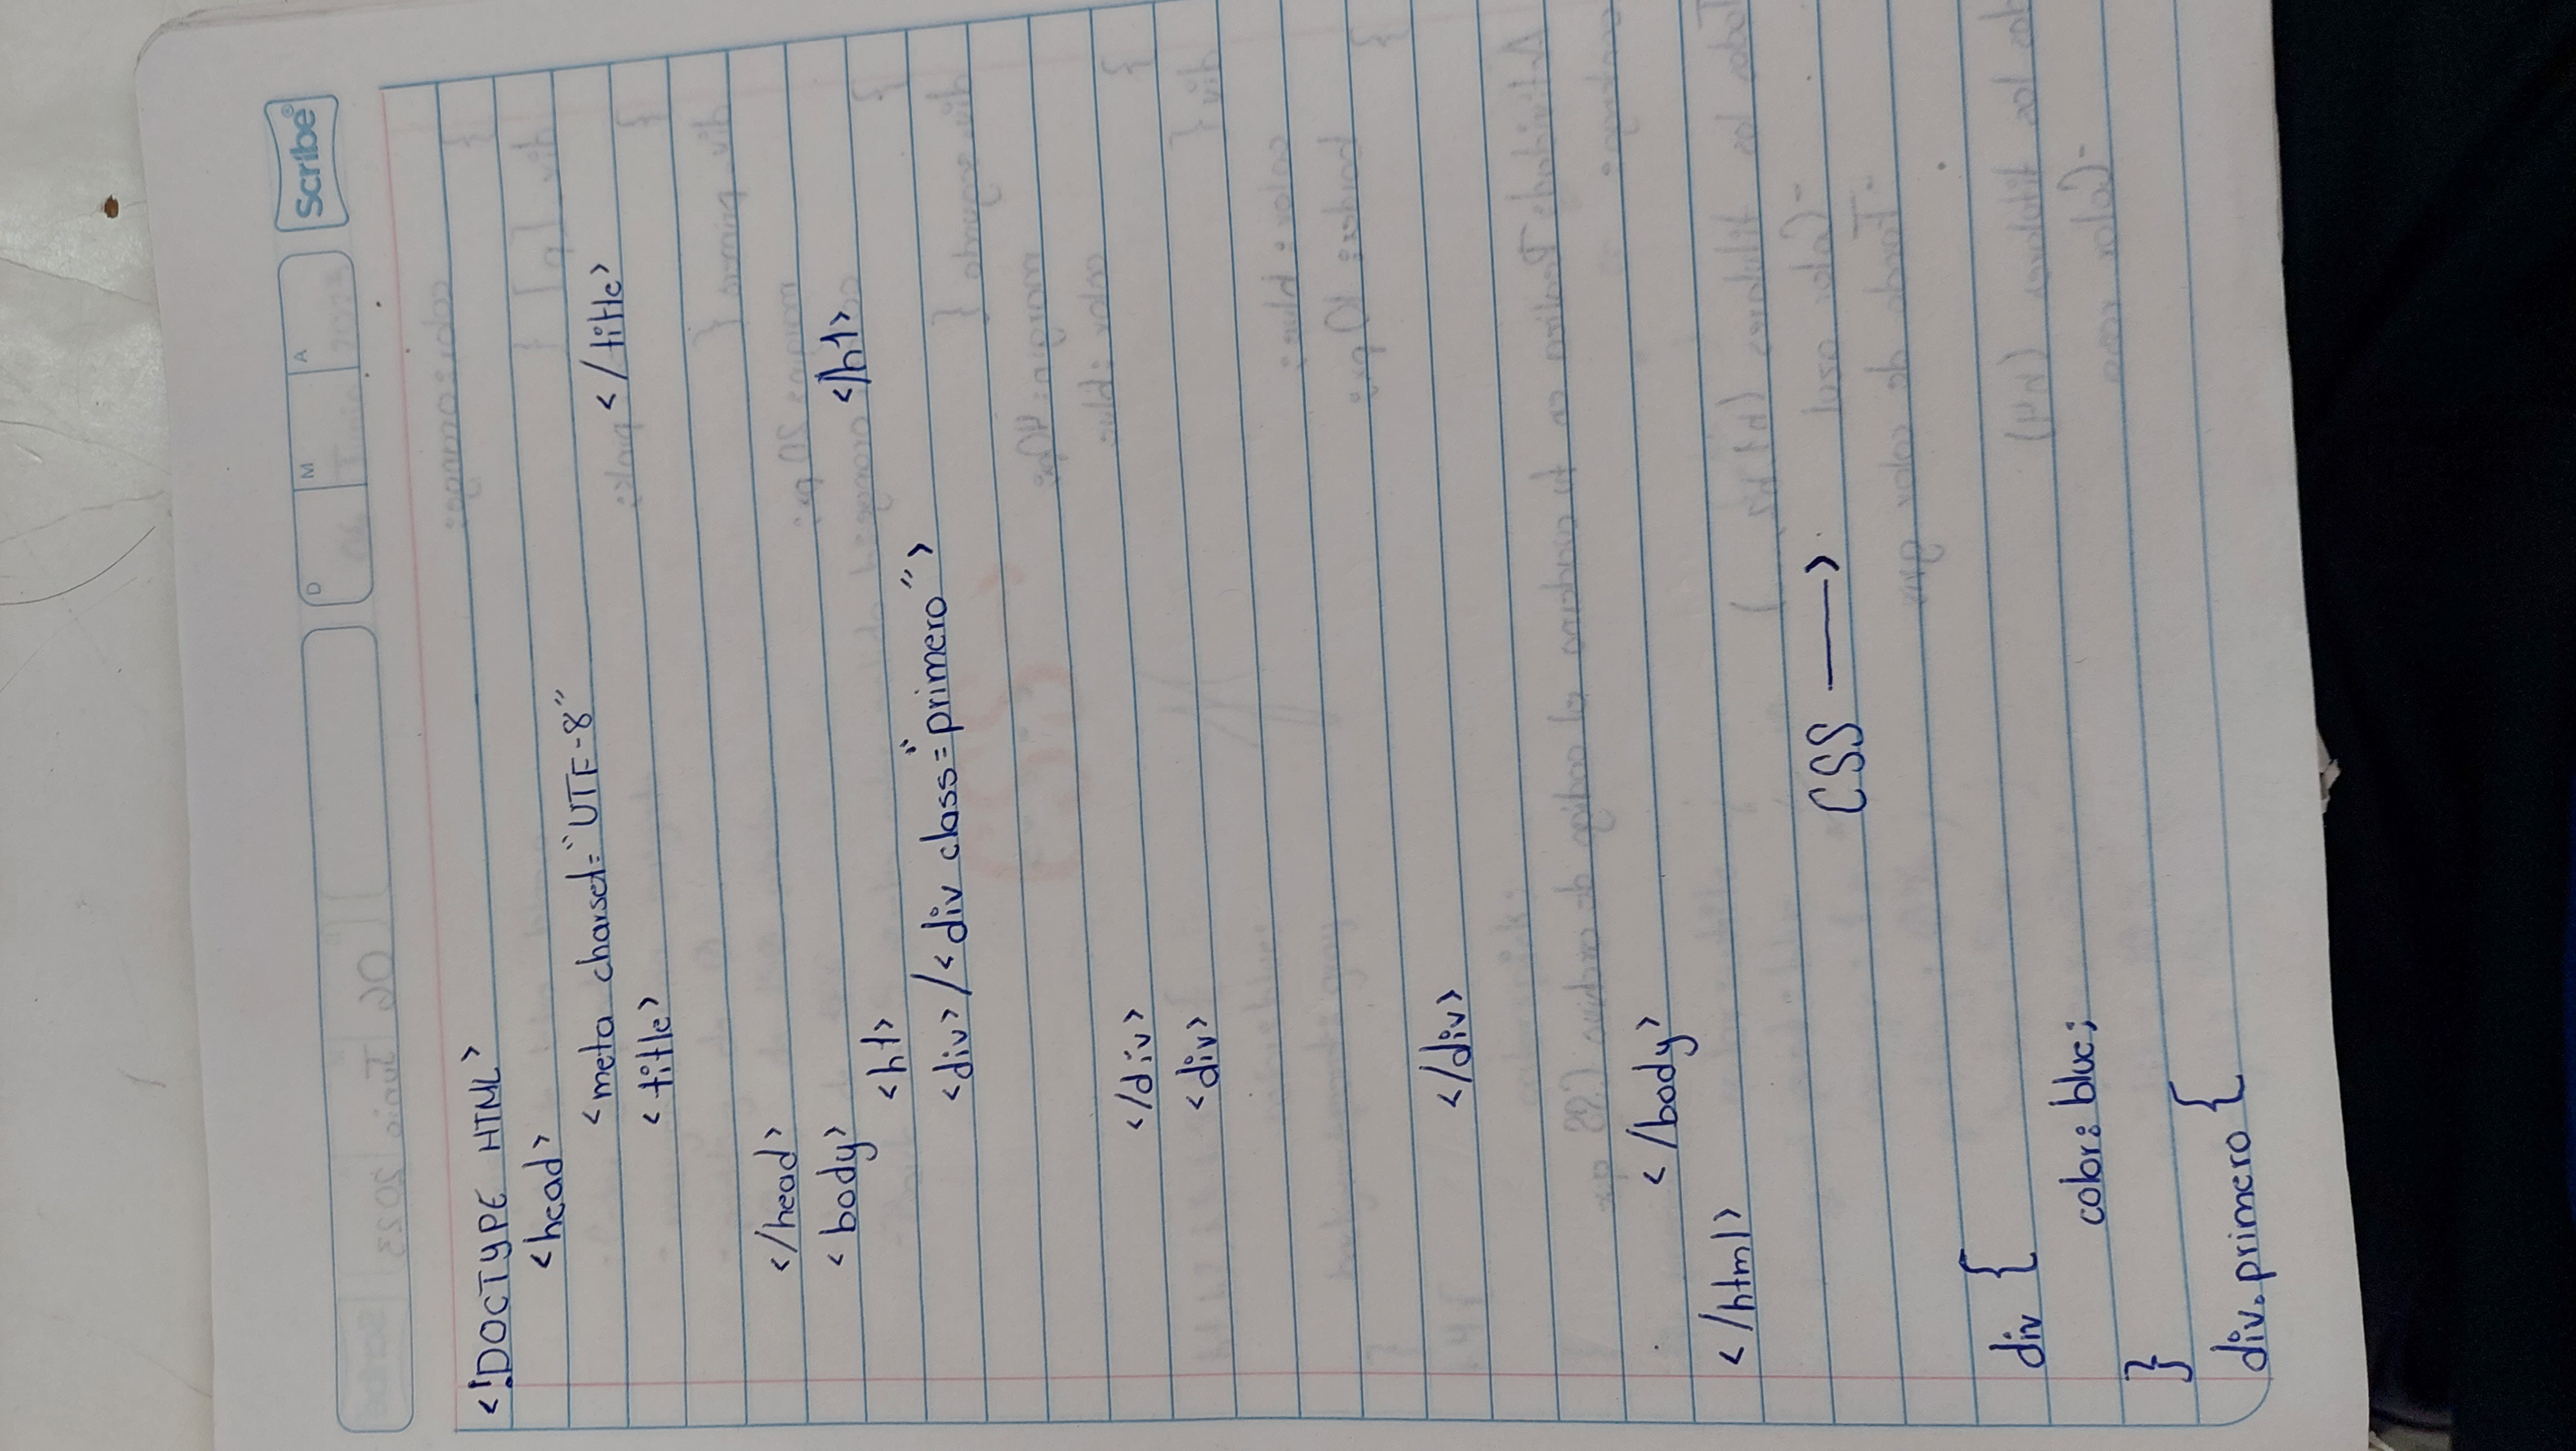 D M A Scribe®
<!DOCTYPE HTML>
<head>
<meta charset="UTF-8"
<title> </title>
</head>
<body>
<h1> </h1>
<div> /<div class="primero">
</div>
<div>
</div>
</body>
</html>
CSS →
div {
color: blue;
}
div.primero {